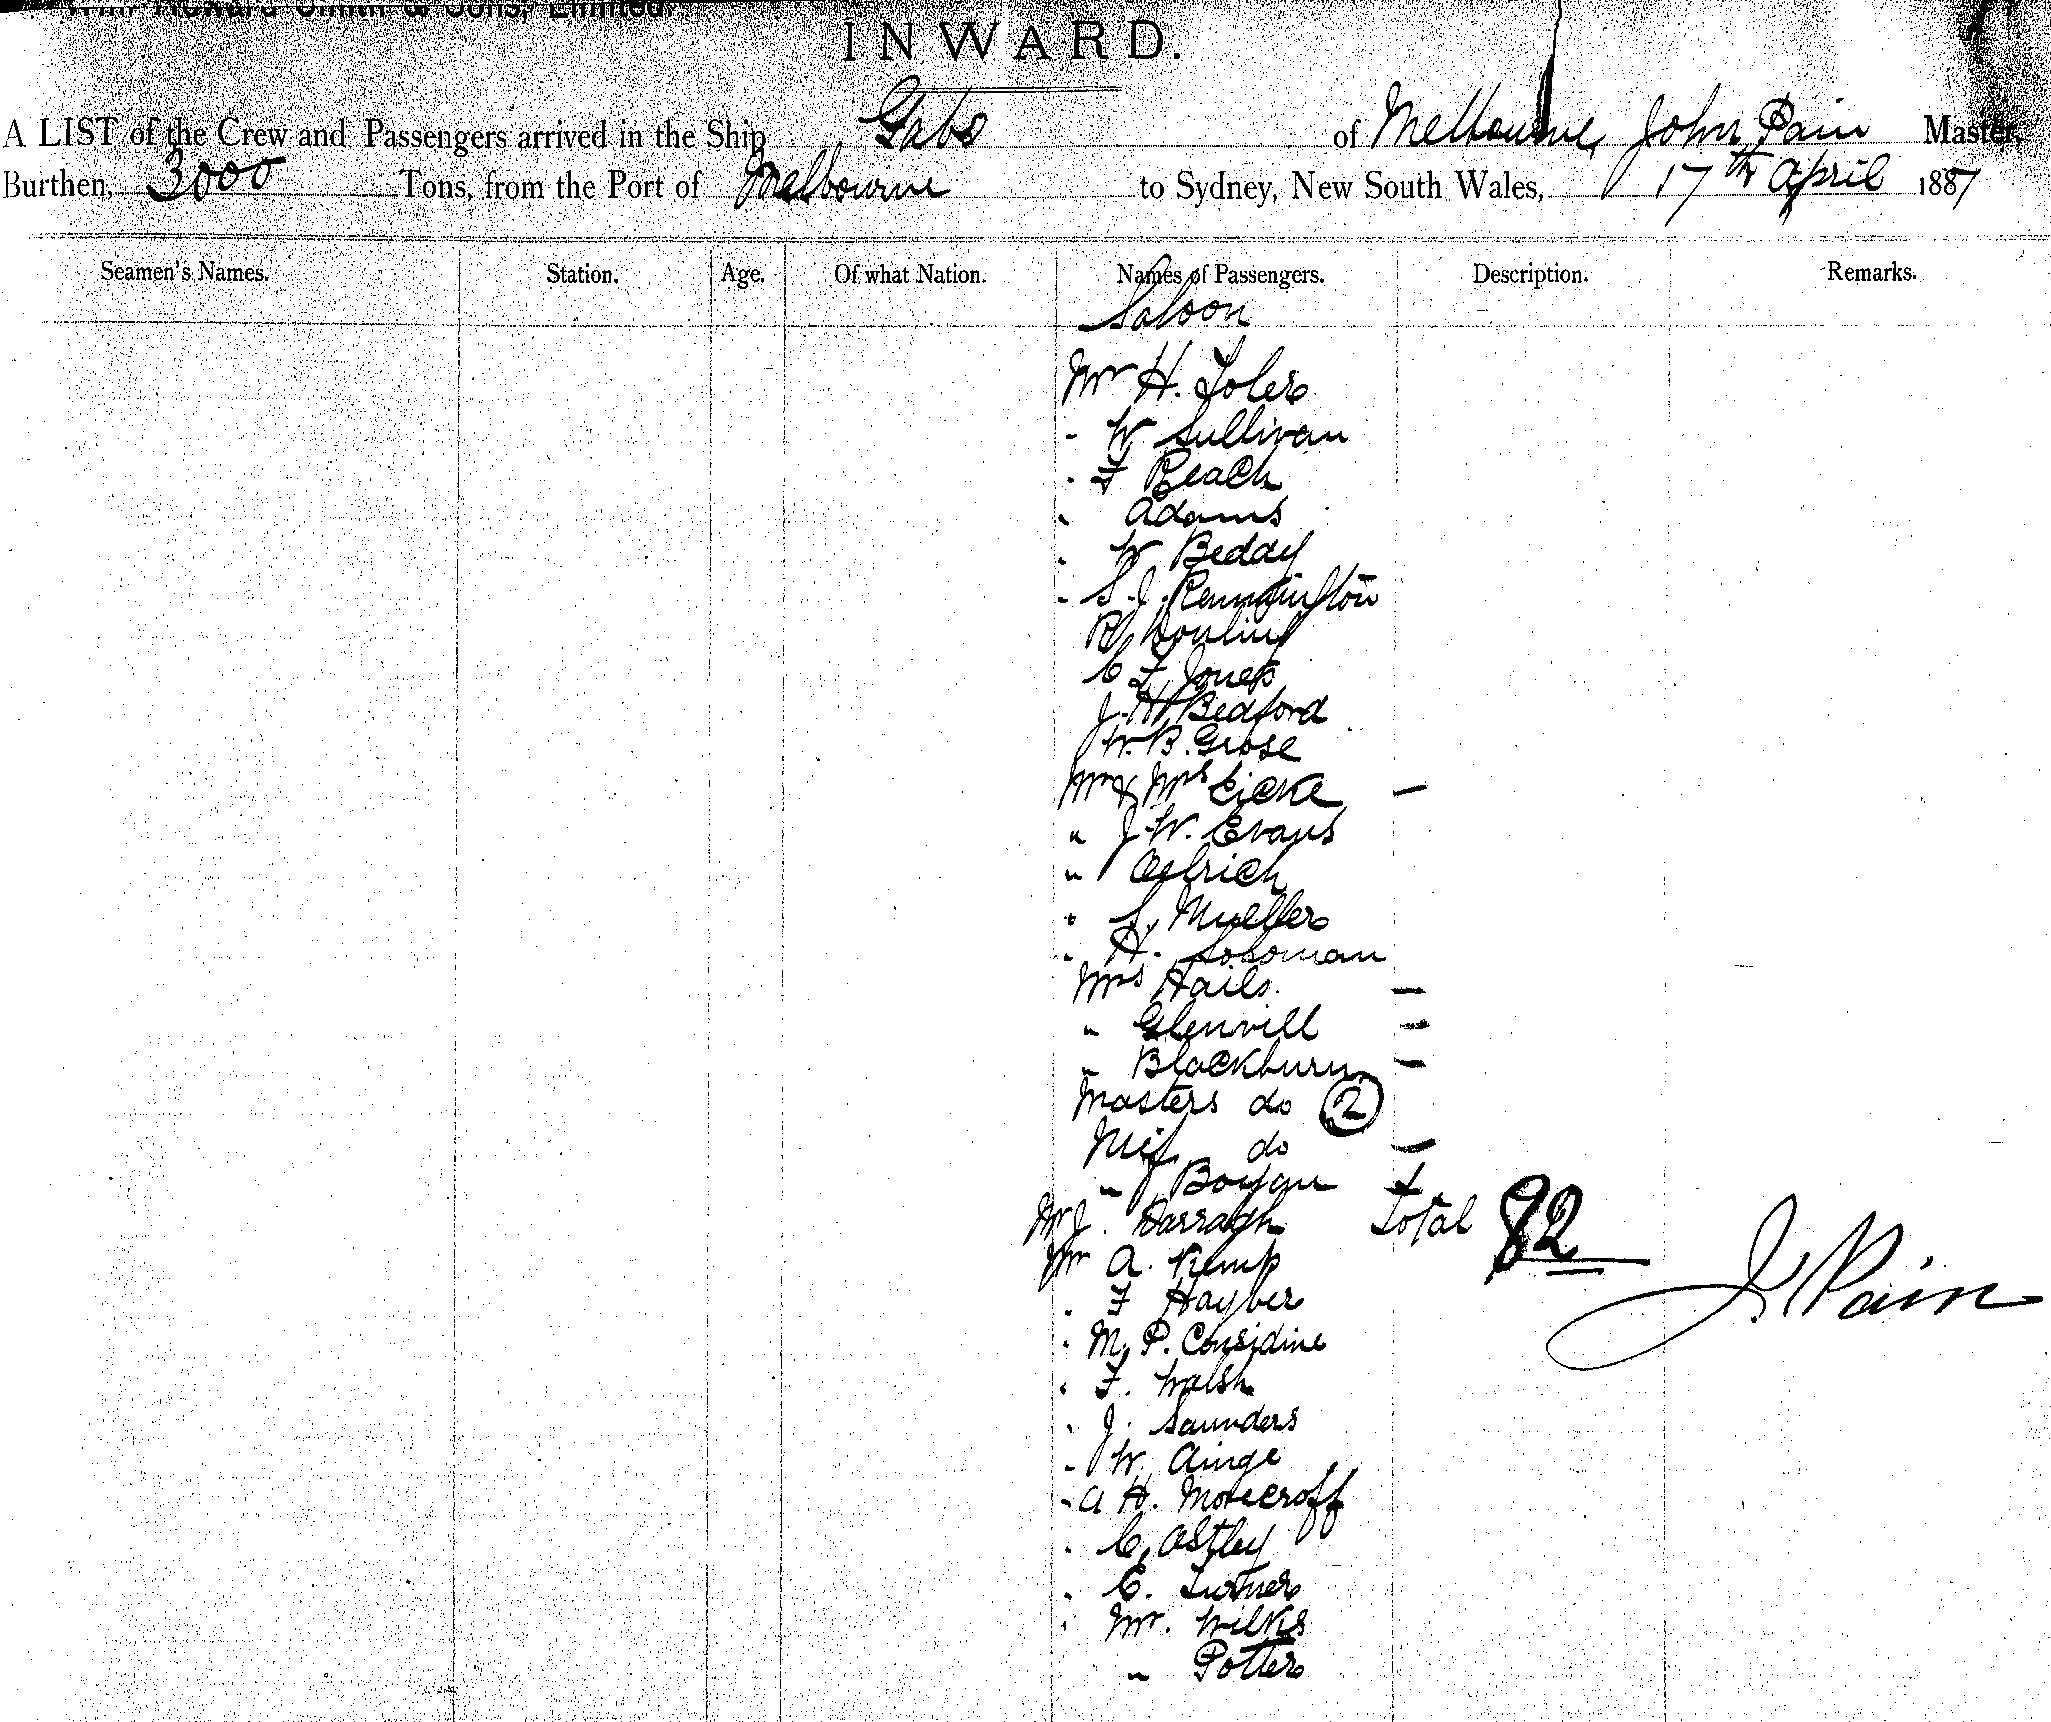 Wm. Howard Smith & Sons, Limited.
INWARD.
A LIST of the Crew and Passengers arrived in the Ship Gabo of Melbourne, John Pain Master,
Burthen, 3000 Tons, from the Port of Melbourne to Sydney, New South Wales, 17th April 1887
Seamen's Names. Station. Age. Of what Nation. Names of Passengers. Description. Remarks.
Saloon
Mr H.
- W Sullivan
. F Beach
" Adams
. W. Beddy
- S. J.
R. Dowling
C F Jones
J. H. Bedford
W. B. Grose
Mr & Mrs Eicke –
" J. W. Evans
" Oelrich
" S. Mueller
. H. Solomon
Mrs Hails. –
" Glenvill =
" Blackburn –
Masters do 2
Miss do –
" Boylan
Mr J. Darragh Total 82
Mr A. Kemp
. F Hayber
. M. P. Considine
. F. Walsh
. J. Saunders
- W. Ainge
- A H. Morecroft
. C. Astley
. E. Turner
. Mr. Wilks
" Potter
J. Pain